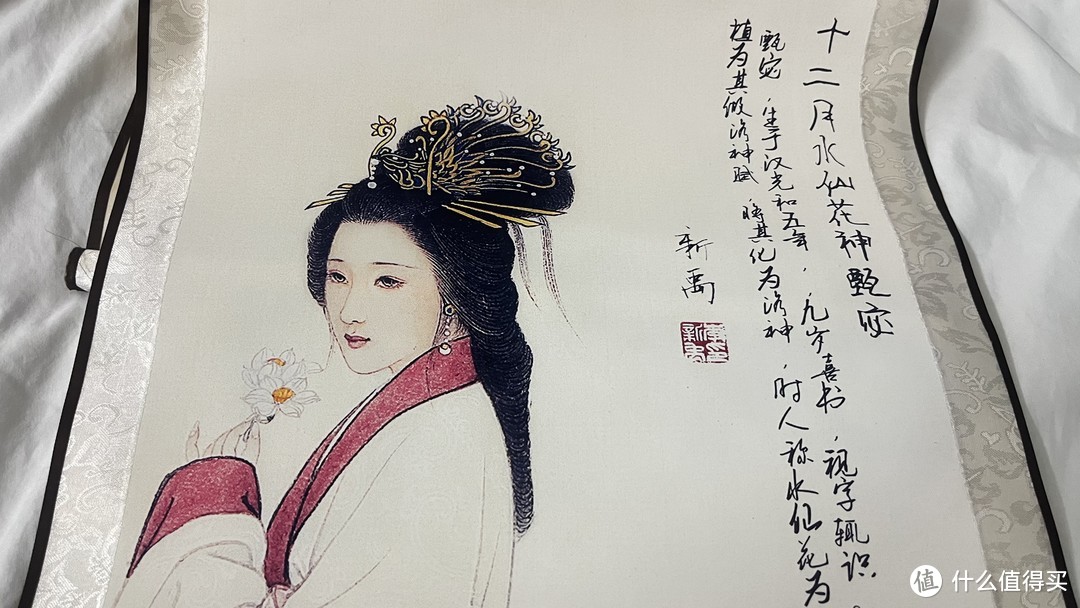 十二月水仙花神甄宓
甄宓,生于汉光和五年,九岁喜书,视字辄识
植为其做洛神赋 将其化为洛神,时人称水仙花为
新禹
值 什么值得买